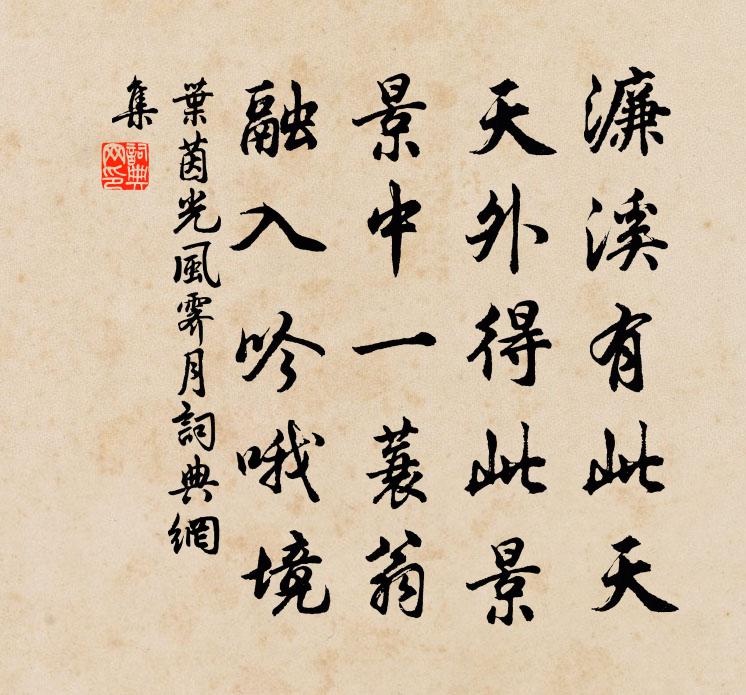 濂溪有此天
天外得此景
景中一蓑翁
融入吟哦境
葉茵光風霽月詞典網
集
詞典
网印